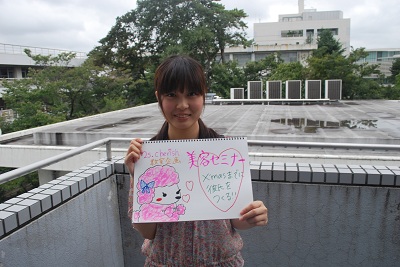 美容セミナー
Xmasまでに
彼氏を
つくる!